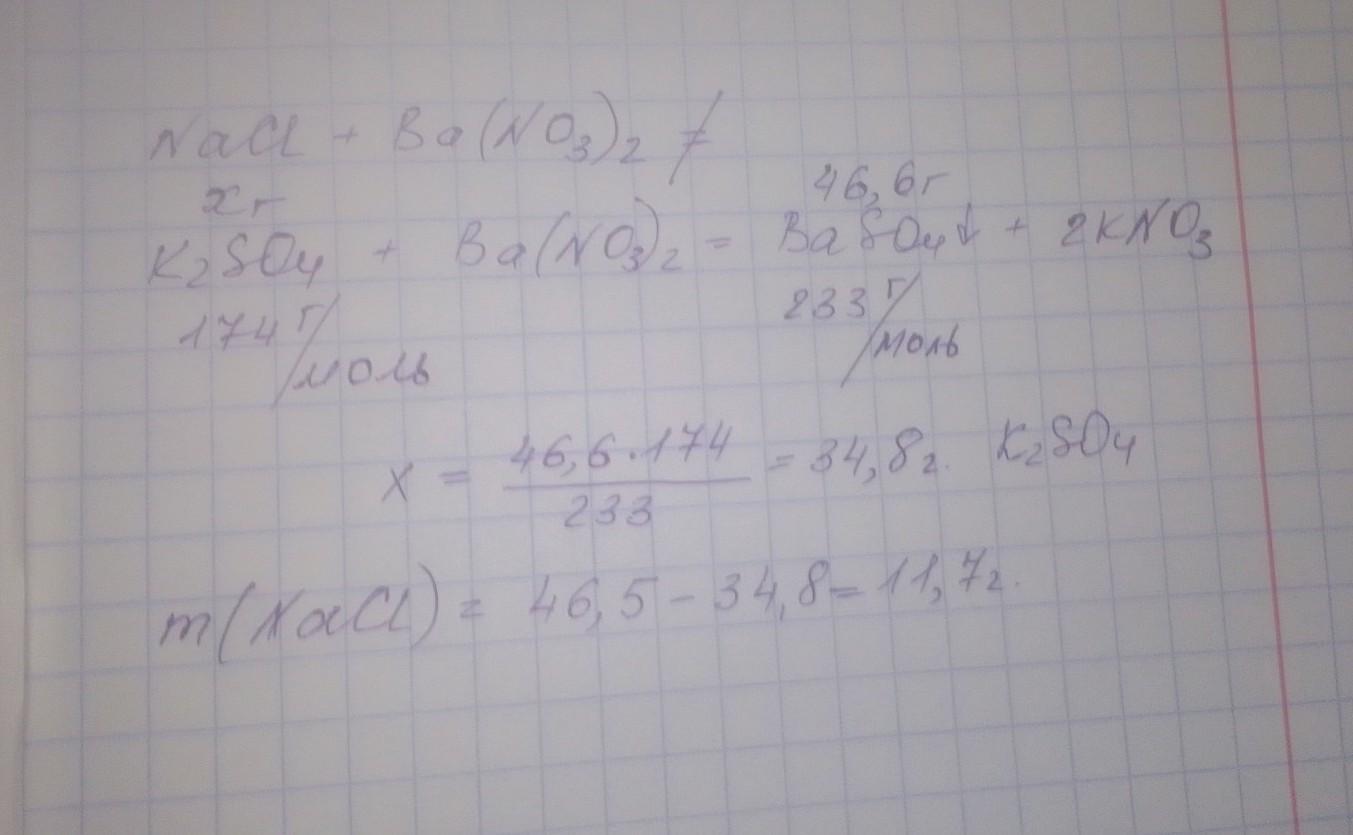 NaCl + Ba(NO3)2 ≠
xг 46,6г
K2SO4 + Ba(NO3)2 = BaSO4↓ + 2KNO3
174 г/моль 233 г/моль
x = 46,6·174/233 = 34,8г. K2SO4
m(NaCl) = 46,5 - 34,8 = 11,7г.